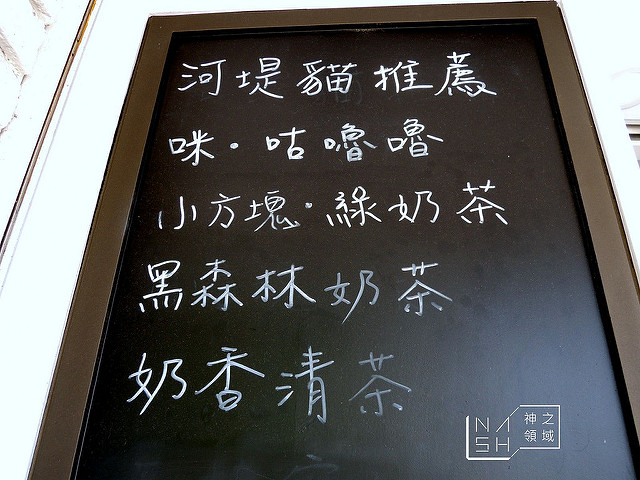 河堤貓推薦
咪·咕嚕嚕
小方塊·綠奶茶
黑森林奶茶
奶香清茶
NASH 神之領域